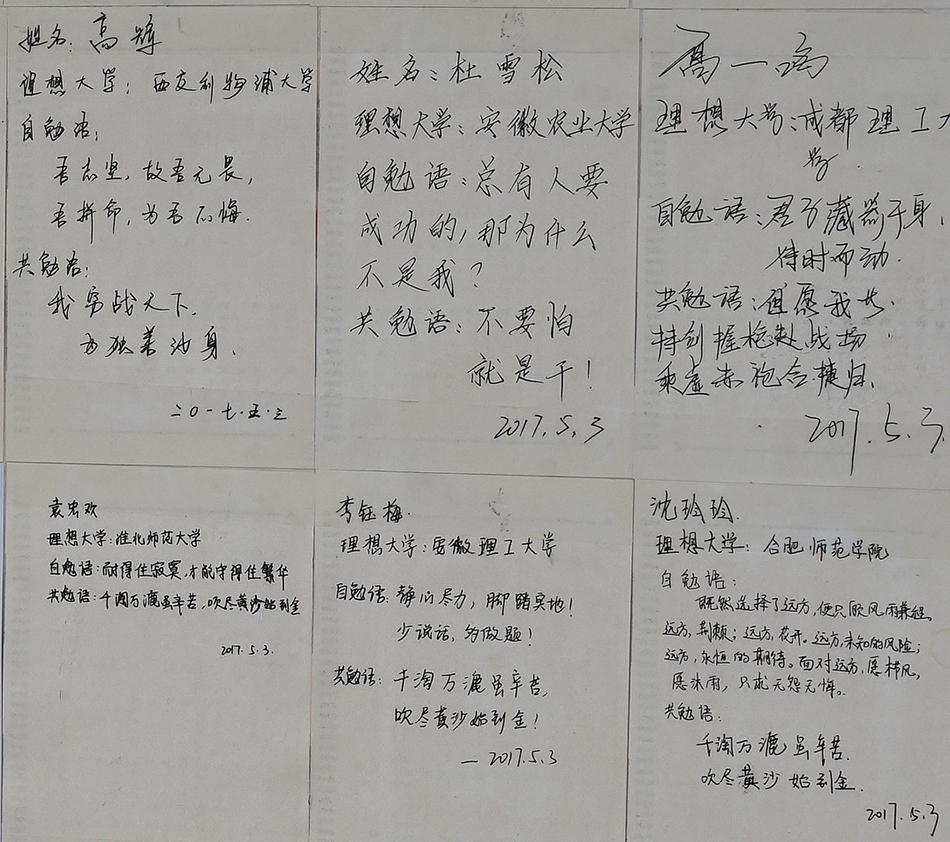 姓名：高辉
理想大学：西交利物浦大学
自勉语：
吾志坚，故吾无畏，
吾拼命，为吾不悔.
共勉语：
我劳战天下.
为独善沙身.
二〇一七.五.三
姓名：杜雪松
理想大学：安徽农业大学
自勉语：总有人要
成功的，那为什么
不是我？
共勉语：不要怕
就是干！
2017.5.3
高一
理想大学：成都理工大
学.
自勉语：君子藏器于身，
待时而动.
共勉语：但愿我长.
持剑握枪赴战场.
乘 赤袍合捷归.
2017.5.3.
袁忠欢
理想大学：淮北师范大学
自勉语：耐得住寂寞，才能守得住繁华
共勉语：千淘万漉虽辛苦，吹尽黄沙始到金
2017.5.3.
李钰梅.
理想大学：安徽理工大学
自勉语：静心尽力，脚踏实地！
少说话，多做题！
共勉语：千淘万漉虽辛苦，
吹尽黄沙始到金！
—2017.5.3
沈玲玲.
理想大学：合肥师范学院
自勉语：
既然选择了远方，便只顾风雨兼程.
远方，荆棘；远方，花开。远方，未知的风险；
远方，永恒的期待。面对远方，愿栉风，
愿沐雨，只求无怨无悔。
共勉语：
千淘万漉虽辛苦.
吹尽黄沙始到金.
2017.5.3